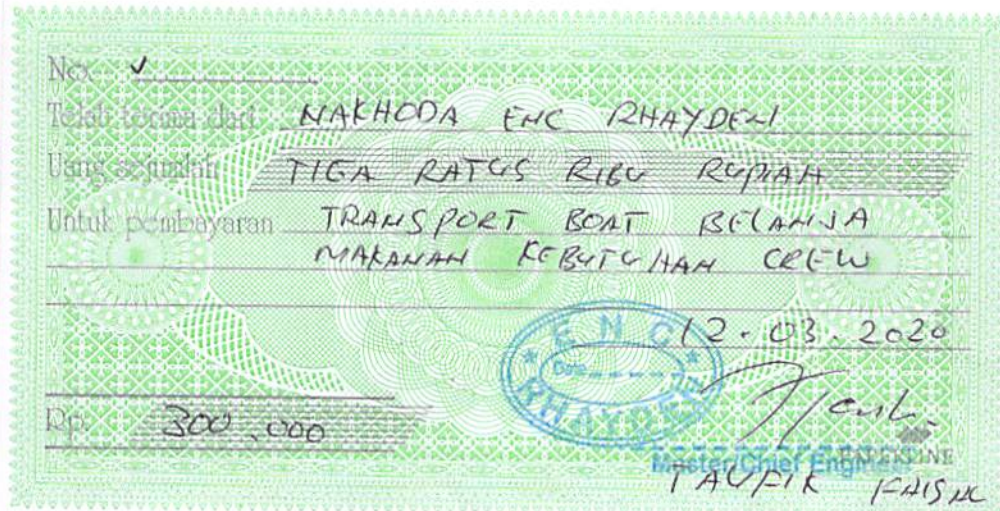 No. ✓
Telah terima dari NAKHODA ENC RHAYDEN
Uang sejumlah TIGA RATUS RIBU RUPIAH
Untuk pembayaran TRANSPORT BOAT BELANJA
MAKANAN KEBUTUHAN CREW
12.03.2020
ENC
Date
RHAYDEN
Rp. 300.000
Master/Chief Engineer
TAUFIK